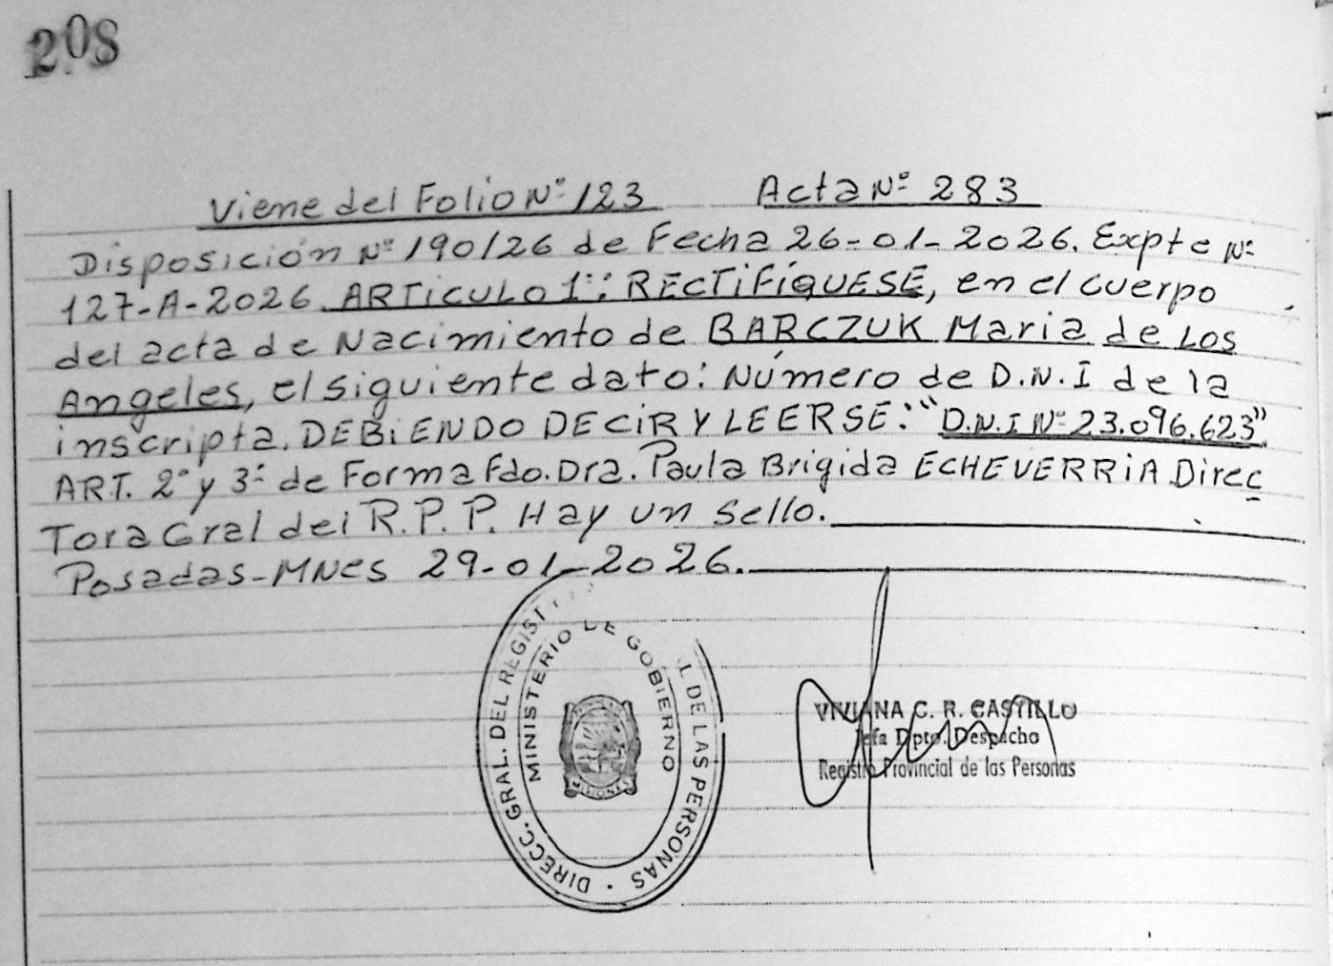 208
Viene del Folio Nº 123 Acta Nº 283
Disposición Nº 190/26 de Fecha 26-01-2026. Expte Nº
127-A-2026. ARTICULO 1º: RECTIFÍQUESE, en el cuerpo
del acta de Nacimiento de BARCZUK Maria de Los
Angeles, el siguiente dato: Número de D.N.I de la
inscripta. DEBIENDO DECIR Y LEERSE: "D.N.I Nº 23.096.623"
ART. 2º y 3º de Forma Fdo. Dra. Paula Brigida ECHEVERRIA Direc
Tora Gral del R.P.P. Hay un Sello.
Posadas-MNES 29-01-2026.
DIRECC. GRAL. DEL REGIST L DE LAS PERSONAS
MINISTERIO DE GOBIERNO
MISIONES
VIVIANA C. R. CASTILLO
Jefa Dpto. Despacho
Registro Provincial de las Personas